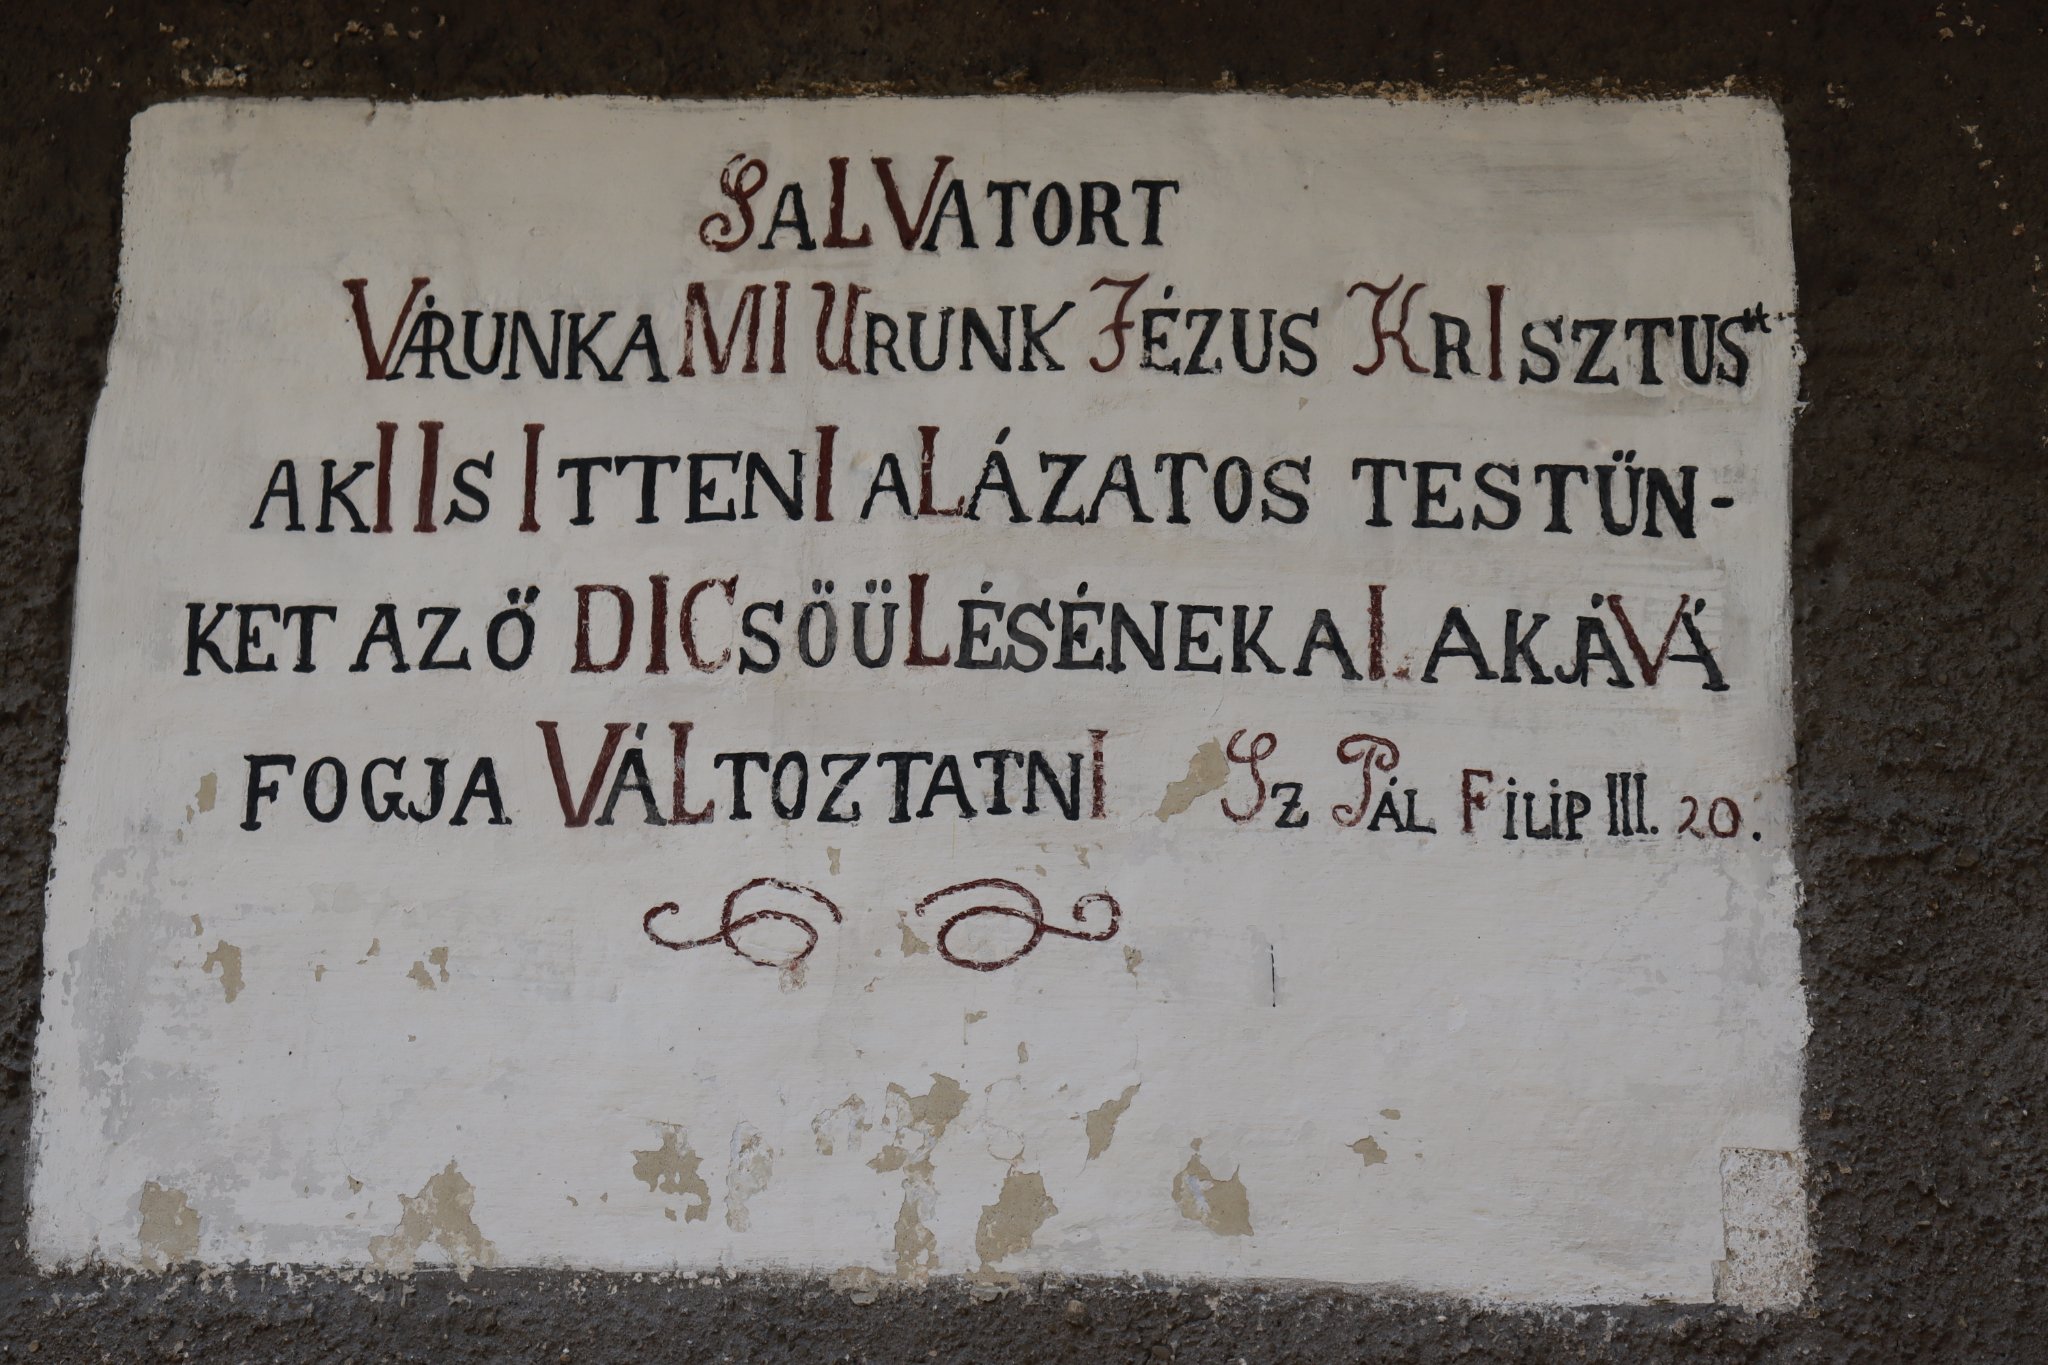 SALVATORT
VÁRUNK A MI URUNK JÉZUS KRISZTUSt
AKI IS ITTENI ALÁZATOS TESTÜN-
KET AZ Ő DICSÖÜLÉSÉNEK AI. AKÁVÁ
FOGJA VÁLTOZTATNI SZ PÁL FiLiP III. 20.